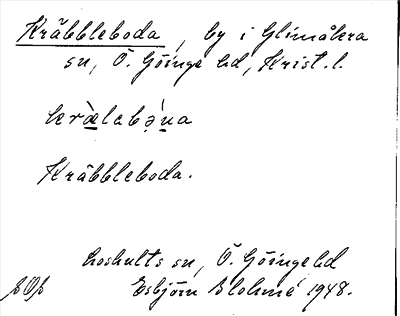 Kräbbleboda, by i Glimåkra
sn, Ö. Göinge hd, Krist. l.
kræ̀lebə́na
Kräbbleboda.
Loshults sn, Ö. Göinge hd
Esbjörn Blohmé 1948.